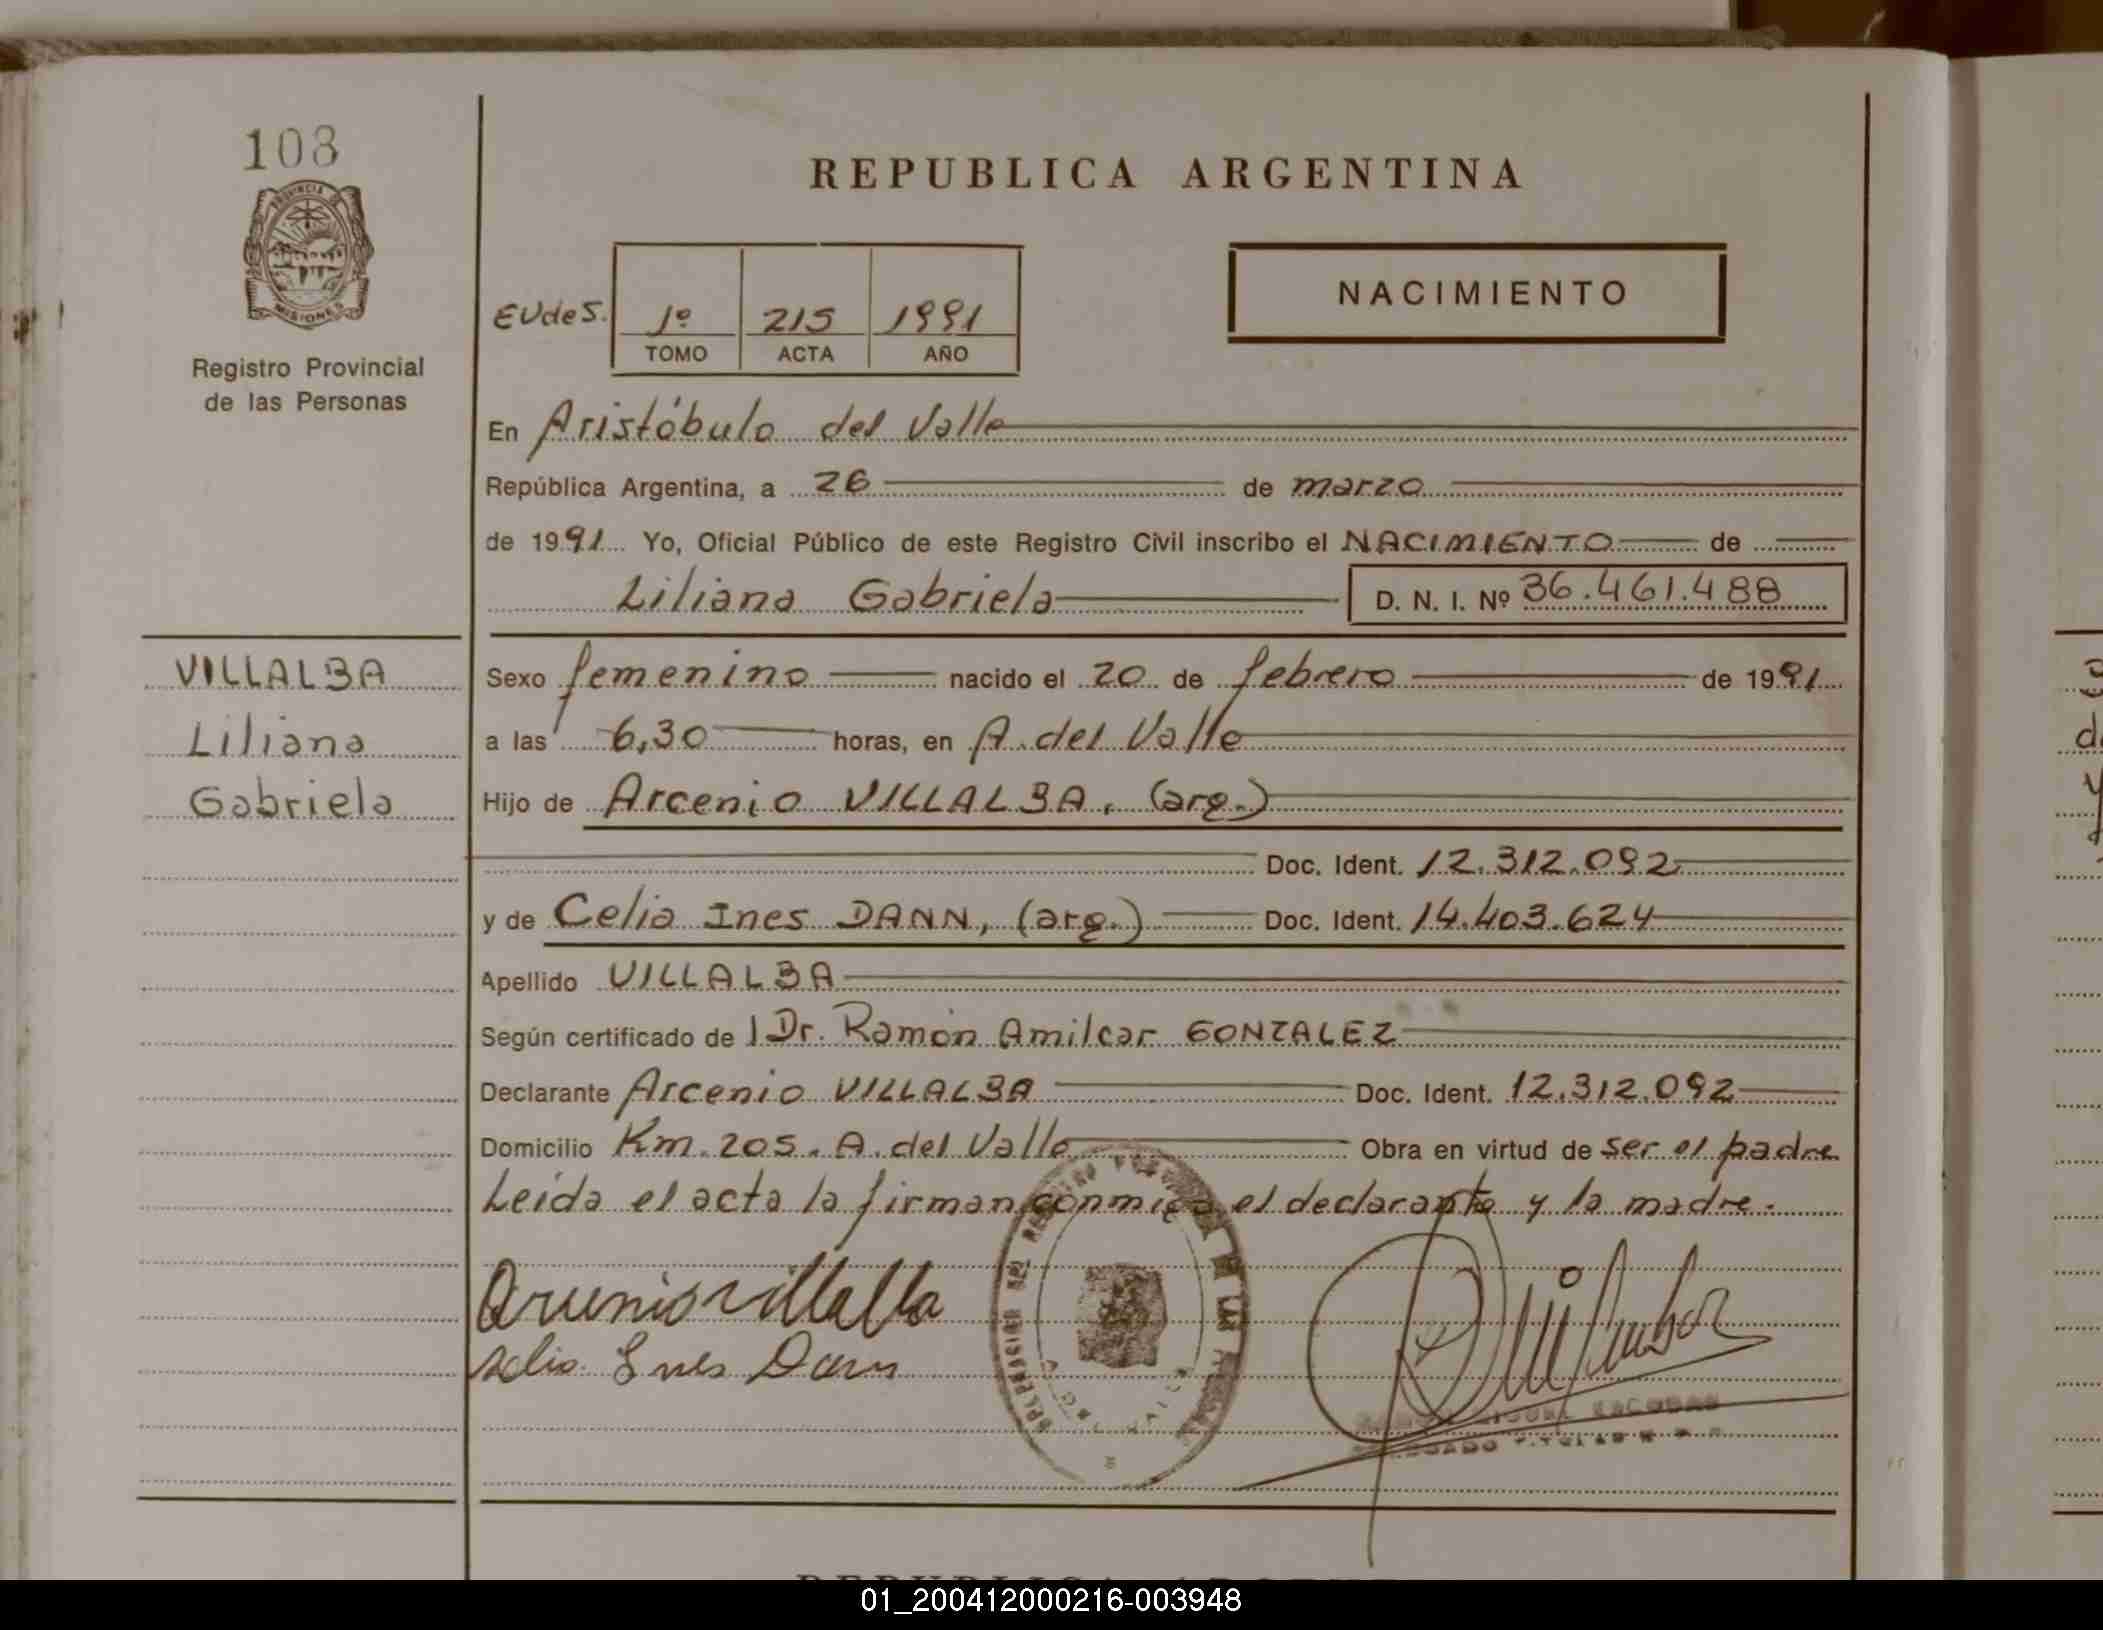 108
PROVINCIA DE
MISIONES
Registro Provincial
de las Personas
VILLALBA
Liliana
Gabriela
REPUBLICA ARGENTINA
EUdeS. 1º 215 1991
TOMO ACTA AÑO
NACIMIENTO
En Aristóbulo del Valle
República Argentina, a 26 de marzo
de 1991 Yo, Oficial Público de este Registro Civil inscribo el NACIMIENTO de
Liliana Gabriela D. N. I. Nº 36.461.488
Sexo femenino nacido el 20 de febrero de 1991
a las 6,30 horas, en A. del Valle
Hijo de Arcenio VILLALBA, (arg.)
Doc. Ident. 12.312.092
y de Celia Ines DANN, (arg.) Doc. Ident. 14.403.624
Apellido VILLALBA
Según certificado de l Dr. Ramón Amilcar GONZALEZ
Declarante Arcenio VILLALBA Doc. Ident. 12.312.092
Domicilio Km. 205. A. del Valle Obra en virtud de ser el padre
Leída el acta la firman conmigo el declarante y la madre.
Arcenio Villalba
Celia Ines Dann
MIGUEL ESCOBAR
01_200412000216-003948